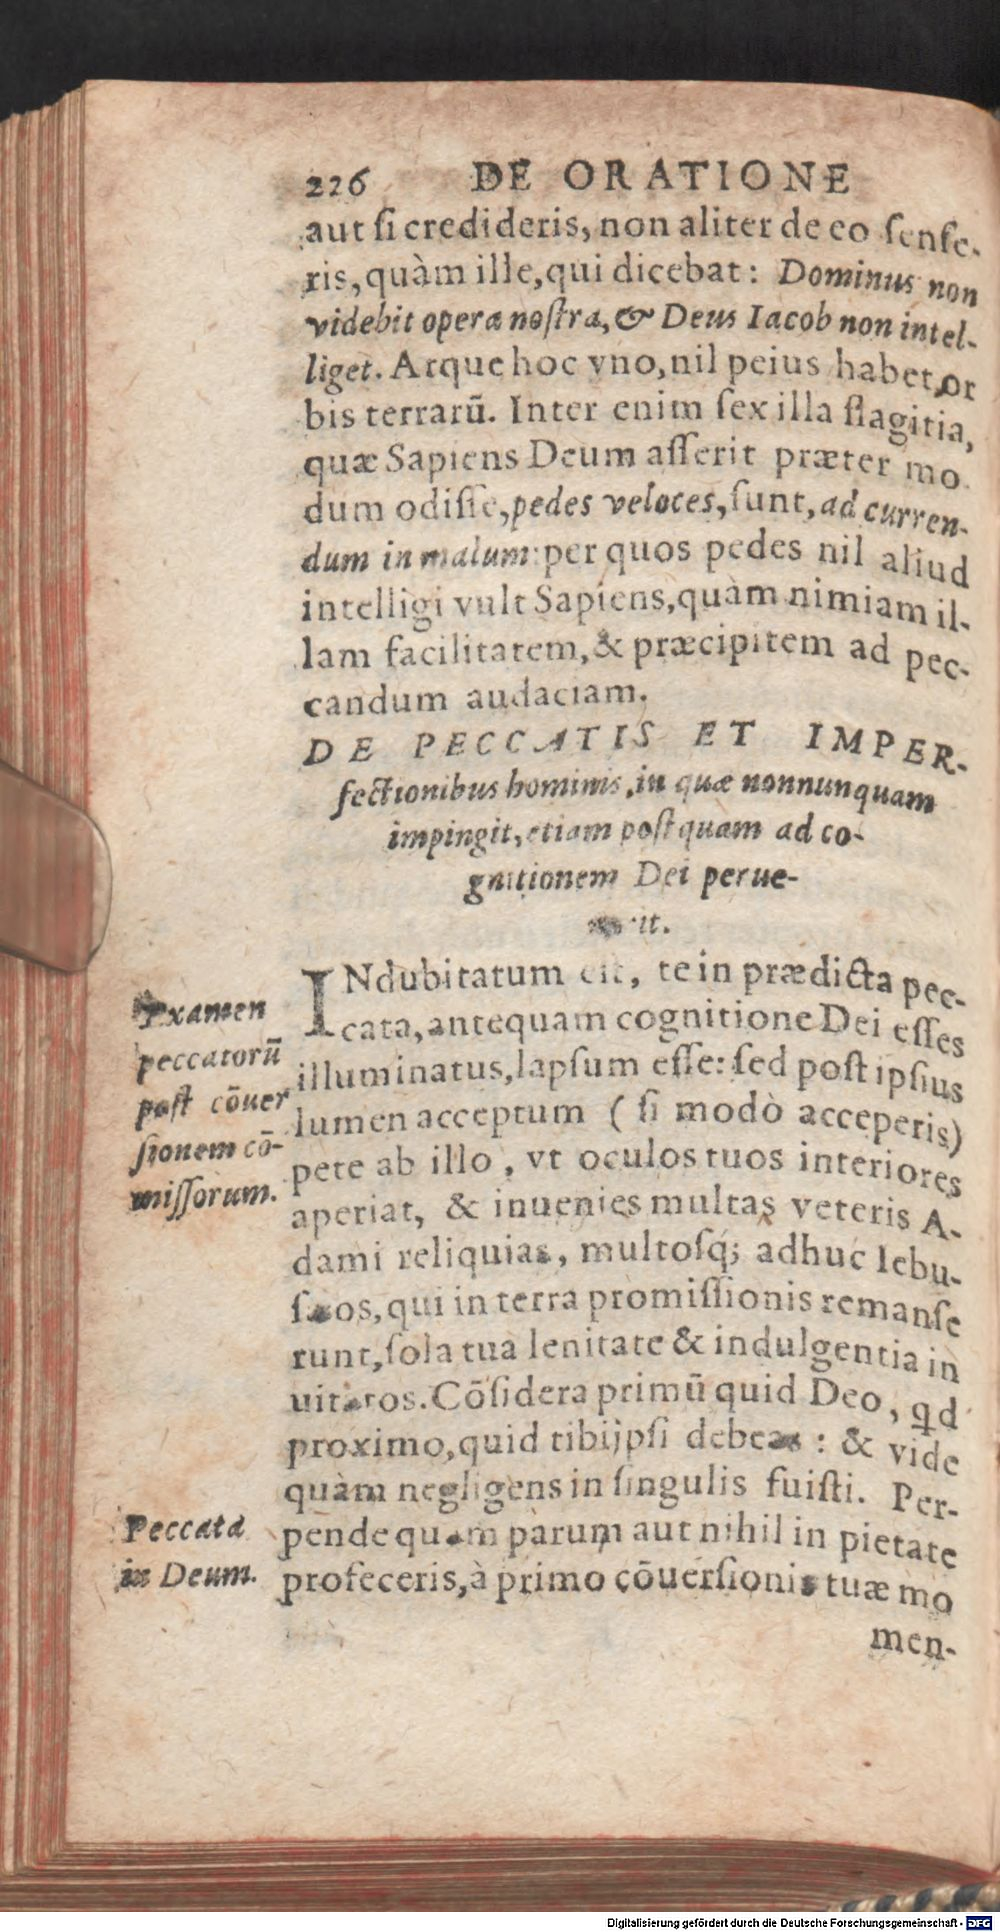 226 DE ORATIONE
aut ſi credideris, non aliter de eo ſenſe-
ris, quàm ille, qui dicebat: Dominus non
videbit opera noſtra, & Deus Iacob non intel-
liget. Atque hoc vno, nil peius habet, or
bis terrarũ. Inter enim ſex illa flagitia,
quæ Sapiens Deum aſſerit præter mo
dum odiſſe, pedes veloces, ſunt, ad curren-
dum in malum: per quos pedes nil aliud
intelligi vult Sapiens, quàm nimiam il-
lam facilitatem, & præcipitem ad pec-
candum audaciam.
DE PECCATIS ET IMPER-
fectionibus hominis, in quæ nonnunquam
impingit, etiam poſtquam ad co-
gnitionem Dei perue-
rit.
INdubitatum eſt, te in prædicta pec-
cata, antequam cognitione Dei eſſes
illuminatus, lapſum eſſe: ſed poſt ipſius
lumen acceptum ( ſi modò acceperis)
pete ab illo, vt oculos tuos interiores
aperiat, & inuenies multas veteris A-
dami reliquias, multoſq; adhuc Iebu-
ſæos, qui in terra promiſſionis remanſe
runt, ſola tua lenitate & indulgentia in
uitatos. Cõſidera primũ quid Deo, qd
proximo, quid tibijpſi debeas: & vide
quàm negligens in ſingulis fuiſti. Per-
pende quam parum aut nihil in pietate
profeceris, à primo cõuerſionis tuæ mo
men-
Examen
peccatorũ
poſt cõuer
ſionem cõ-
miſſorum.
Peccata
in Deum.
Digitalisierung gefördert durch die Deutsche Forschungsgemeinschaft - DFG